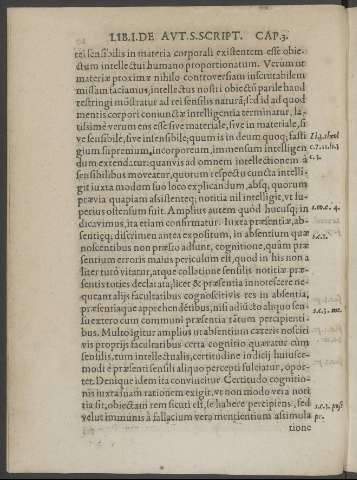 LIB.I.DE AVT.S.SCRIPT. CAP.3.
rei sensibilis in materia corporali existentem esse obie-
ctum intellectui humano proportionatum. Verùm ut
materiæ proximæ nihilo controversiam inscrutabilem
missam faciamus, intellectus nostri obiectũ parile haud
restringi mõstratur ad rei sensilis naturã; sed id ad quod
mentis corpori coniunctæ intelligentia terminatur, la-
tissimè verum ens esse sive materiale, sive in materiale, si
ve sensibile, sive insensibile; quum is in deum quoq; fasti
gium supremum, incorporeum, immensum intelligen
dum extendatur: quanvis ad omnem intellectionem à
sensibilibus moveatur, quorum respectu cuncta intelli-
git iuxta modum suo loco explicandum, absq; quorum
prævia quapiam assistente notitia nil intelligit, ut su-
perius ostensum fuit. Amplius autem quod hucusq; in
dicavimus, ita etiam confirmatur. Iuxta præsentiæ, ab-
sentięq; discrimen antea expositum, in absentium quæ
noscentibus non præsto adsunt, cognitione, quàm præ
sentium erroris maius periculum est, quod in his non a
liter tutò vitatur, atque collatione sensilis notitiæ præ-
sentis toties declarata, licet & præsentia innotescere ne-
queant alijs facultatibus cognoscitivis res in absentia,
præsentiaque apprehendẽtibus, nisi adiũcto aliquo sen-
su extero cum communi præsentia tãtum percipienti-
bus. Multo igitur amplius ut absentium cæteris nosciti
vis proprijs facultatibus certa cognitio quæratur cùm
sensilis, tum intellectualis, certitudine iudicij huiusce-
modi è præsenti sensili aliquo percepti fulciatur, opor-
tet. Denique idem ita convincitur Certitudo cognitio-
nis iuxta suam rationem exigit, ut non modò vera noti
tia sit, obiectam rem sicuti est, se habere percipiens, sed
velut immunis à fallacium vera mentientium astimula
tione
c.3.
1.m.c.4.
s.c.2.
s.c.3. me.
s.c.3. post
pr.